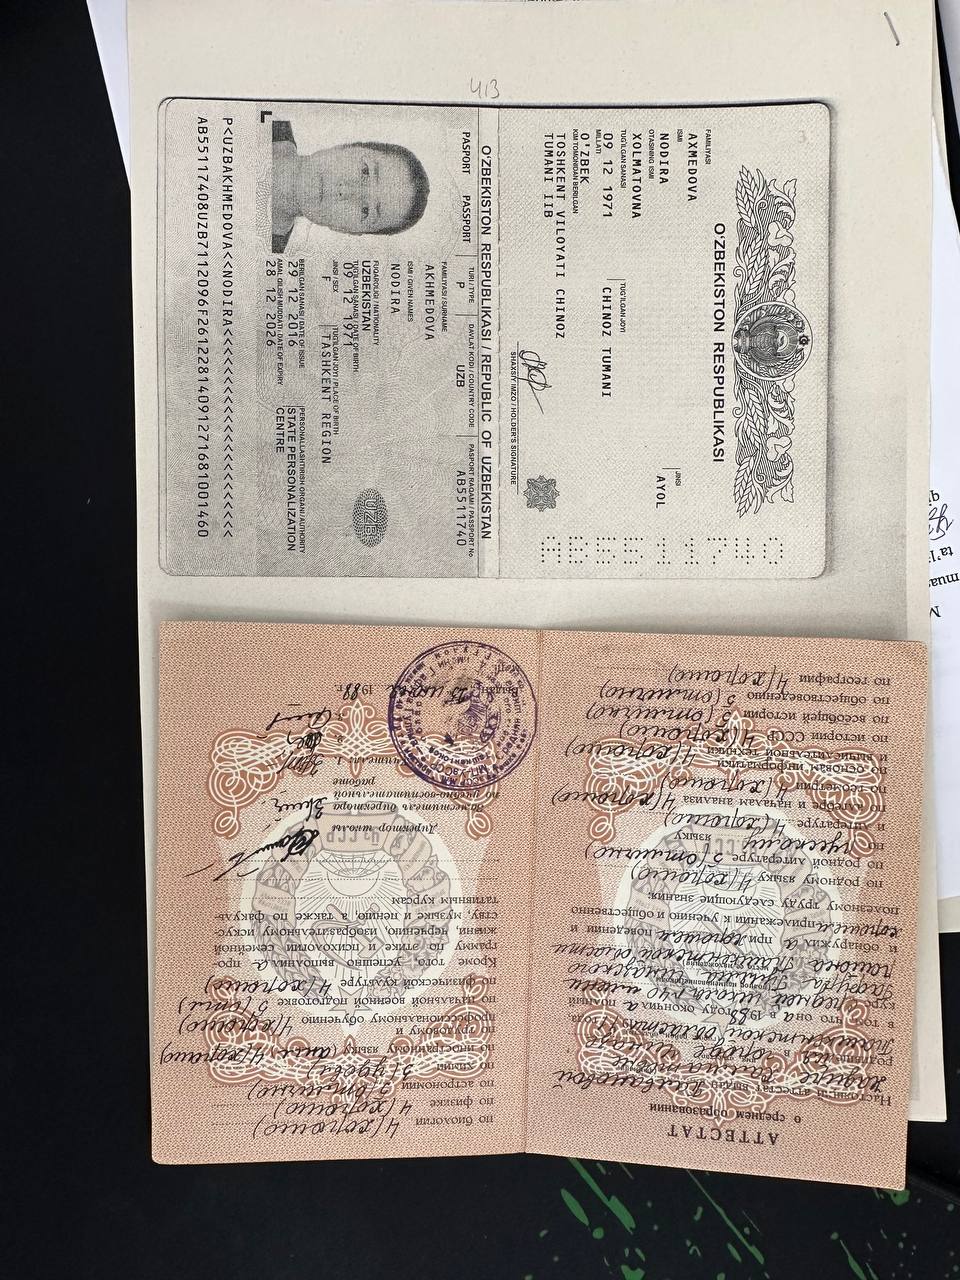 413
O'ZBEKISTON RESPUBLIKASI
FAMILIYASI
AXMEDOVA
ISMI
NODIRA
OTASINING ISMI
XOLMATOVNA
JINSI
AYOL
TUG'ILGAN SANASI
09 12 1971
TUG'ILGAN JOYI
CHINOZ TUMANI
MILLATI
O'ZBEK
KIM TOMONIDAN BERILGAN
TOSHKENT VILOYATI CHINOZ
TUMANI IIB
SHAXSIY IMZO / HOLDER'S SIGNATURE
AB5511740
O'ZBEKISTON RESPUBLIKASI / REPUBLIC OF UZBEKISTAN
PASPORT PASSPORT
TURI / TYPE
P
DAVLAT KODI / COUNTRY CODE
UZB
PASPORT RAQAMI / PASSPORT No
AB5511740
FAMILIYASI / SURNAME
AKHMEDOVA
ISMI / GIVEN NAMES
NODIRA
FUQAROLIGI / NATIONALITY
UZBEKISTAN
TUG'ILGAN SANASI / DATE OF BIRTH
09 12 1971
JINSI / SEX
F
TUG'ILGAN JOYI / PLACE OF BIRTH
TASHKENT REGION
BERILGAN SANASI / DATE OF ISSUE
29 12 2016
PERSONALLASHTIRISH ORGANI / AUTHORITY
STATE PERSONALIZATION
CENTRE
AMAL QILISH MUDDATI / DATE OF EXPIRY
28 12 2026
UZB
P<UZBAKHMEDOVA<<NODIRA<<<<<<<<<<<<<<<<<<<<<<
AB55117408UZB7112096F26122814091271681001460
АТТЕСТАТ
о среднем образовании
Настоящий аттестат выдан
в том, что он а в 1988 году окончил а полный
курс средней школы №40 имени
Гафура Гуляма Чиназского
района Ташкентской области
и обнаружил а при хорошем поведении и
хорошем прилежании к учению и общественно
полезному труду следующие знания:
по родному языку 4 (хорошо)
по родной литературе 5 (отлично)
по русскому языку
и литературе 4 (хорошо)
по алгебре и началам анализа 4 (хорошо)
по геометрии 4 (хорошо)
по основам информатики
и вычислительной техники 4 (хорошо)
по истории СССР 4 (хорошо)
по всеобщей истории 5 (отлично)
по обществоведению 5 (отлично)
по географии 4 (хорошо)
по биологии 4 (хорошо)
по физике 4 (хорошо)
по астрономии 5 (отлично)
по химии
по иностранному языку (англ) 4 (хорошо)
по трудовому и
профессиональному обучению 4 (хорошо)
по начальной военной подготовке 5 (отл)
по физической культуре 4 (хорошо)
Кроме того, успешно выполнил а про-
грамму по этике и психологии семейной
жизни, черчению, изобразительному искус-
ству, музыке и пению, а также по факуль-
тативным курсам
Директор школы
Заместитель директора
по учебно-воспитательной
работе
Учителя: 1.
2.
3.
Выдан 25 июня 1988 г.